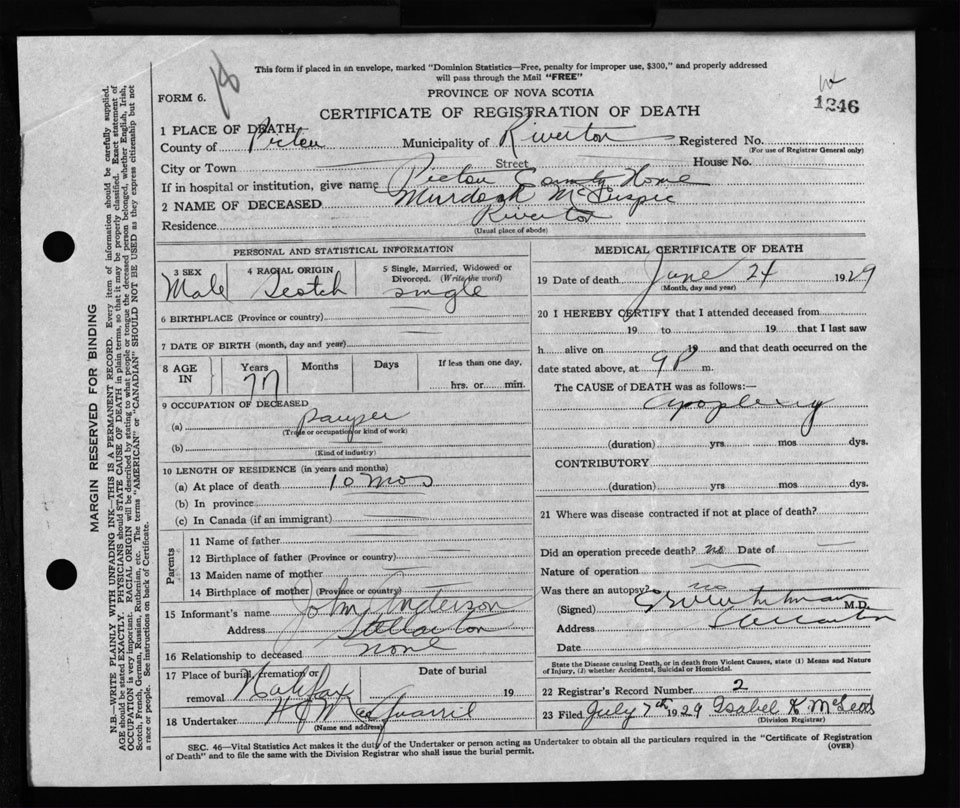 This form if placed in an envelope, marked "Dominion Statistics—Free, penalty for improper use, $300," and properly addressed
will pass through the Mail "FREE"
18
FORM 6.
PROVINCE OF NOVA SCOTIA
1246
CERTIFICATE OF REGISTRATION OF DEATH
1 PLACE OF DEATH
County of Pictou Municipality of Riverton Registered No.
(For use of Registrar General only)
City or Town Street House No.
If in hospital or institution, give name Pictou County Home
2 NAME OF DECEASED Murdoch
Residence Riverton
(Usual place of abode)
PERSONAL AND STATISTICAL INFORMATION
3 SEX 4 RACIAL ORIGIN 5 Single, Married, Widowed or
Divorced. (Write the word)
Male Scotch single
6 BIRTHPLACE (Province or country)
7 DATE OF BIRTH (month, day and year)
8 AGE IN Years Months Days If less than one day,
77 hrs. or min.
9 OCCUPATION OF DECEASED
(a) pauper
(Trade or occupation or kind of work)
(b)
(Kind of industry)
10 LENGTH OF RESIDENCE (in years and months)
(a) At place of death 10 mos
(b) In province
(c) In Canada (if an immigrant)
Parents
11 Name of father
12 Birthplace of father (Province or country)
13 Maiden name of mother
14 Birthplace of mother (Province or country)
15 Informant's name John Anderson
Address Stellarton
16 Relationship to deceased none
17 Place of burial, cremation or Date of burial
removal Halifax 19
18 Undertaker
(Name and address)
MEDICAL CERTIFICATE OF DEATH
19 Date of death June 24 1929
(Month, day and year)
20 I HEREBY CERTIFY that I attended deceased from
19 to 19 that I last saw
h alive on 19 and that death occurred on the
date stated above, at 9 P m.
The CAUSE of DEATH was as follows:—
apoplexy
(duration) yrs mos dys.
CONTRIBUTORY
(duration) yrs mos dys.
21 Where was disease contracted if not at place of death?
Did an operation precede death? no Date of
Nature of operation
Was there an autopsy? no
(Signed) M.D.
Address Stellarton
Date
State the Disease causing Death, or in death from Violent Causes, state (1) Means and Nature
of Injury, (2) whether Accidental, Suicidal or Homicidal.
22 Registrar's Record Number 2
23 Filed July 7th 1929 Isabel K McLeod
(Division Registrar)
SEC. 46—Vital Statistics Act makes it the duty of the Undertaker or person acting as Undertaker to obtain all the particulars required in the "Certificate of Registration
of Death" and to file the same with the Division Registrar who shall issue the burial permit. (OVER)
MARGIN RESERVED FOR BINDING
N.B.—WRITE PLAINLY WITH UNFADING INK—THIS IS A PERMANENT RECORD. Every item of information should be carefully supplied.
AGE should be stated EXACTLY. PHYSICIANS should STATE CAUSE OF DEATH in plain terms, so that it may be properly classified. Exact statement of
OCCUPATION is very important. RACIAL ORIGIN will be described by stating to what people or tongue the deceased person belonged, whether English, Irish,
Scotch, French, German, Russian, Ruthenian, etc. The terms "AMERICAN" or "CANADIAN" SHOULD NOT BE USED as they express citizenship but not
a race or people. See instructions on back of Certificate.